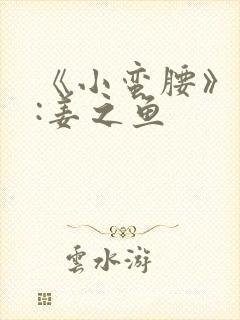 《小蛮腰》
:姜之鱼
雲水游